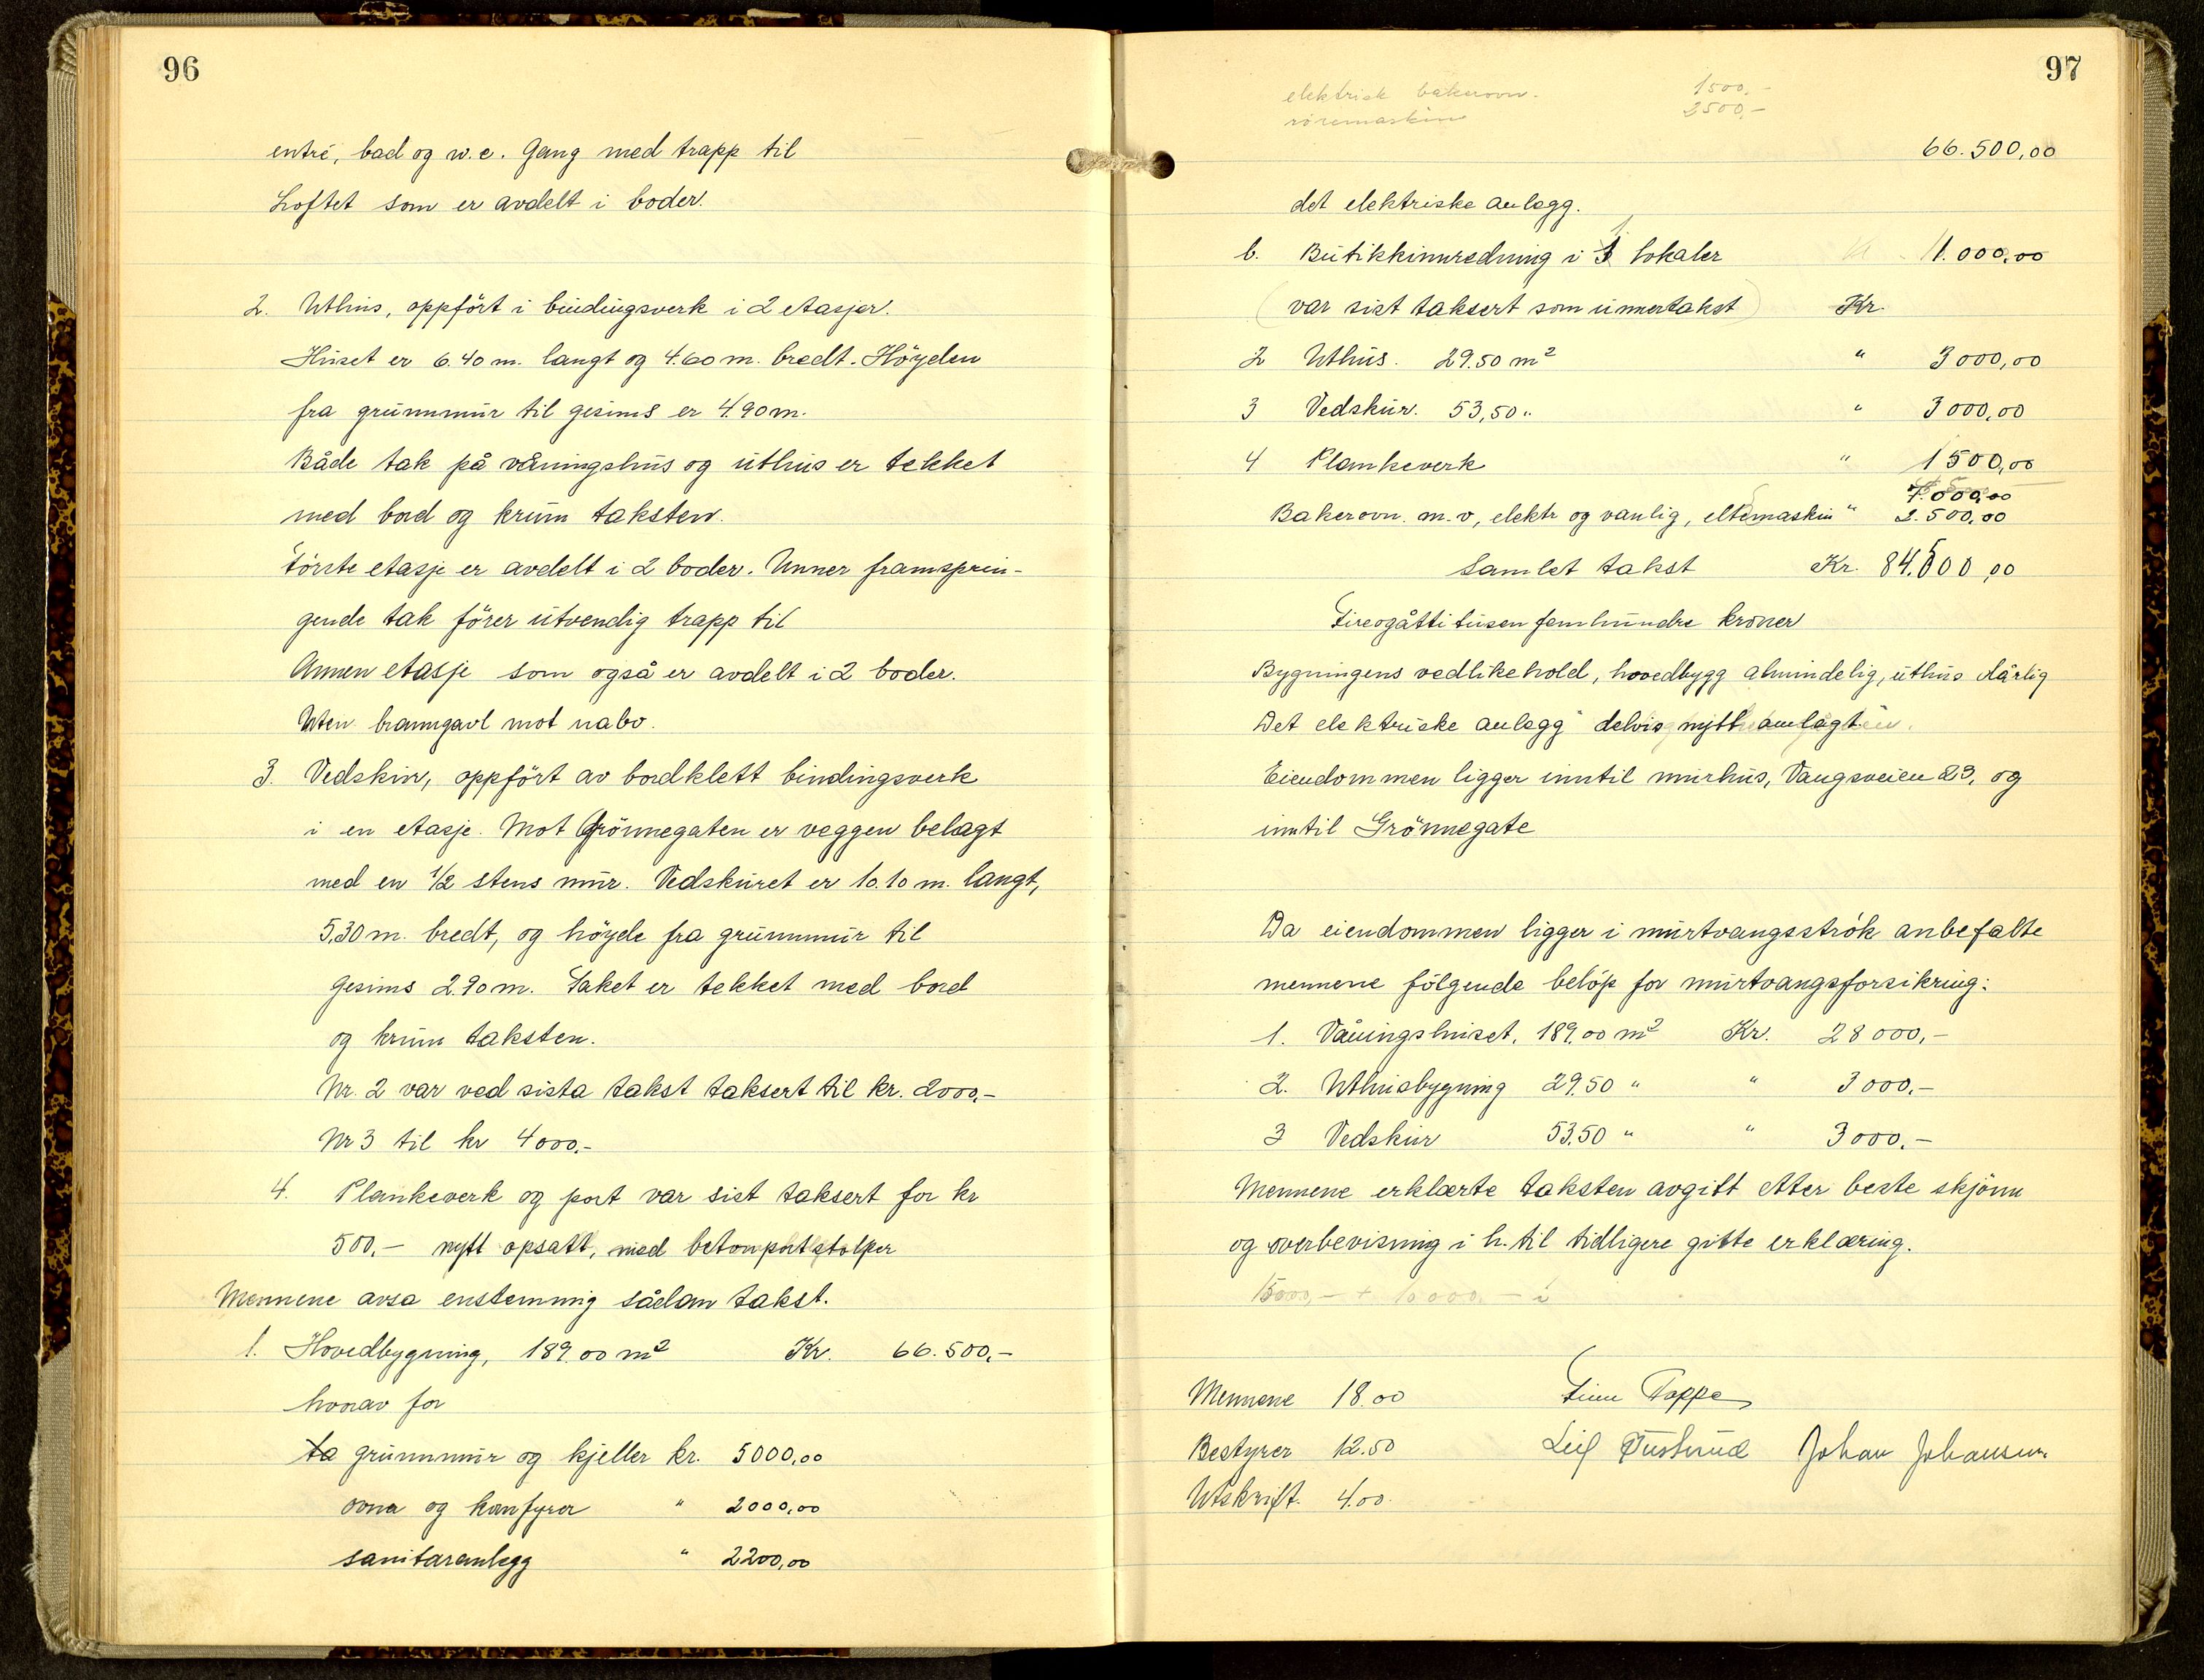 96
entré, bad og w.c. Gang med trapp til
Loftet som er avdelt i boder.
2. Uthus, oppfört i bindingsverk i 2 etasjer.
Huset er 6.40 m. langt og 4.60 m. bredt. Höyden
fra grunnmur til gesims er 4.90 m.
Både tak på våningshus og uthus er tekket
med bord og krum taksten.
Förste etasje er avdelt i 2 boder. Unner framsprin-
gende tak förer utvendig trapp til
Annen etasje som også er avdelt i 2 boder.
Uten branngavl mot nabo.
3. Vedskur, oppfört av bordklett bindingsverk
i en etasje. Mot Grönnegaten er veggen belagt
med en 1/2 stens mur. Vedskuret er 10.10 m. langt,
5,30 m. bredt, og höyde fra grunnmur til
gesims 2.90 m. Taket er tekket med bord
og krum taksten.
Nr. 2 var ved sista takst taksert til kr. 2000,-
Nr 3 til kr 4000.-
4. Plankeverk og port var sist taksert for kr
500,- nytt opsatt, med betonportstolper
Mennene avsa enstemmig sådan takst.
1. Hovedbygning, 189.00 m² Kr. 66.500,-
hvorav for
grunnmur og kjeller kr. 5000,00
ovna og komfyrer " 2000,00
sanitaranlegg " 2200,00
97
elektrisk bakerovn. 1500,-
röremaskin 2500,-
66.500,00
det elektriske anlegg.
b. Butikkinnredning i lokaler 1.000,00
(var sist taksert som unnertakst) Kr.
2 Uthus. 29.50 m² " 3000,00
3 Vedskur. 53,50 " " 3000,00
4 Plankeverk " 1500,00
7.000,00
Bakerovn. m.v, elektr og vanlig, eltemaskin " 2.500,00
Samlet takst Kr. 84.500,00
Fireogåttitusen femhundre kroner
Bygningens vedlikehold, hovedbygg almindelig, uthus dårlig
Det elektriske anlegg delvis nytt anlagt
Eiendommen ligger inntil murhus, Vangsveien 23, og
inntil Grönnegate
Da eiendommen ligger i murtvangsströk anbefalte
mennene fölgende belöp for murtvangsforsikring:
1. Våningshuset. 189.00 m² Kr. 28000,-
2. Uthusbygning 29.50 " " 3000.-
3 Vedskur 53.50 " " 3000.-
Mennene erklærte taksten avgitt etter beste skjönn
og overbevisning i h. til tidligere gitte erklæring.
Mennene 18.00 Finn Toppe
Bestyrer 12.50 Leif Johan Johansen
Utskrift. 4.00.